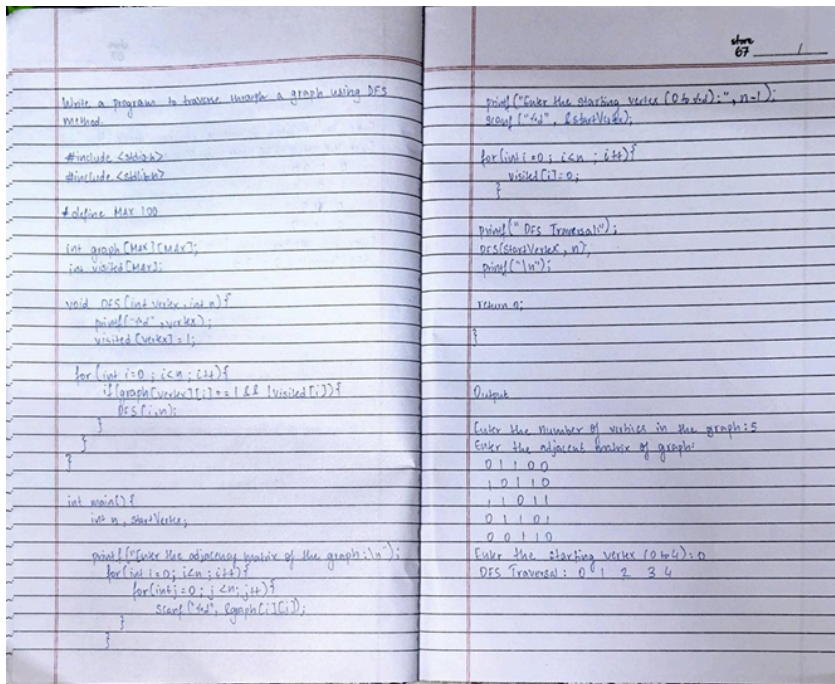 Write a program to traverse through a graph using DFS
method.
#include <stdio.h>
#include <stdlib.h>
#define MAX 100
int graph[MAX][MAX];
int visited[MAX];
void DFS(int vertex, int n){
printf("%d", vertex);
visited[vertex] = 1;
for(int i=0; i<n; i++){
if(graph[vertex][i] == 1 && !visited[i]){
DFS(i,n);
}
}
}
int main(){
int n, startVertex;
printf("Enter the adjacency matrix of the graph:\n");
for(int i=0; i<n; i++){
for(int j=0; j<n; j++){
scanf("%d", &graph[i][i]);
}
}
store
67 /
printf("Enter the starting vertex (0 to %d):", n-1);
scanf("%d", &startVertex);
for(int i=0; i<n; i++){
visited[i]=0;
}
printf("DFS Traversal:");
DFS(startVertex, n);
printf("\n");
return 0;
}
Output
Enter the number of vertices in the graph: 5
Enter the adjacent matrix of graph:
0 1 1 0 0
1 0 1 1 0
1 1 0 1 1
0 1 1 0 1
0 0 1 1 0
Enter the starting vertex (0 to 4): 0
DFS Traversal: 0 1 2 3 4